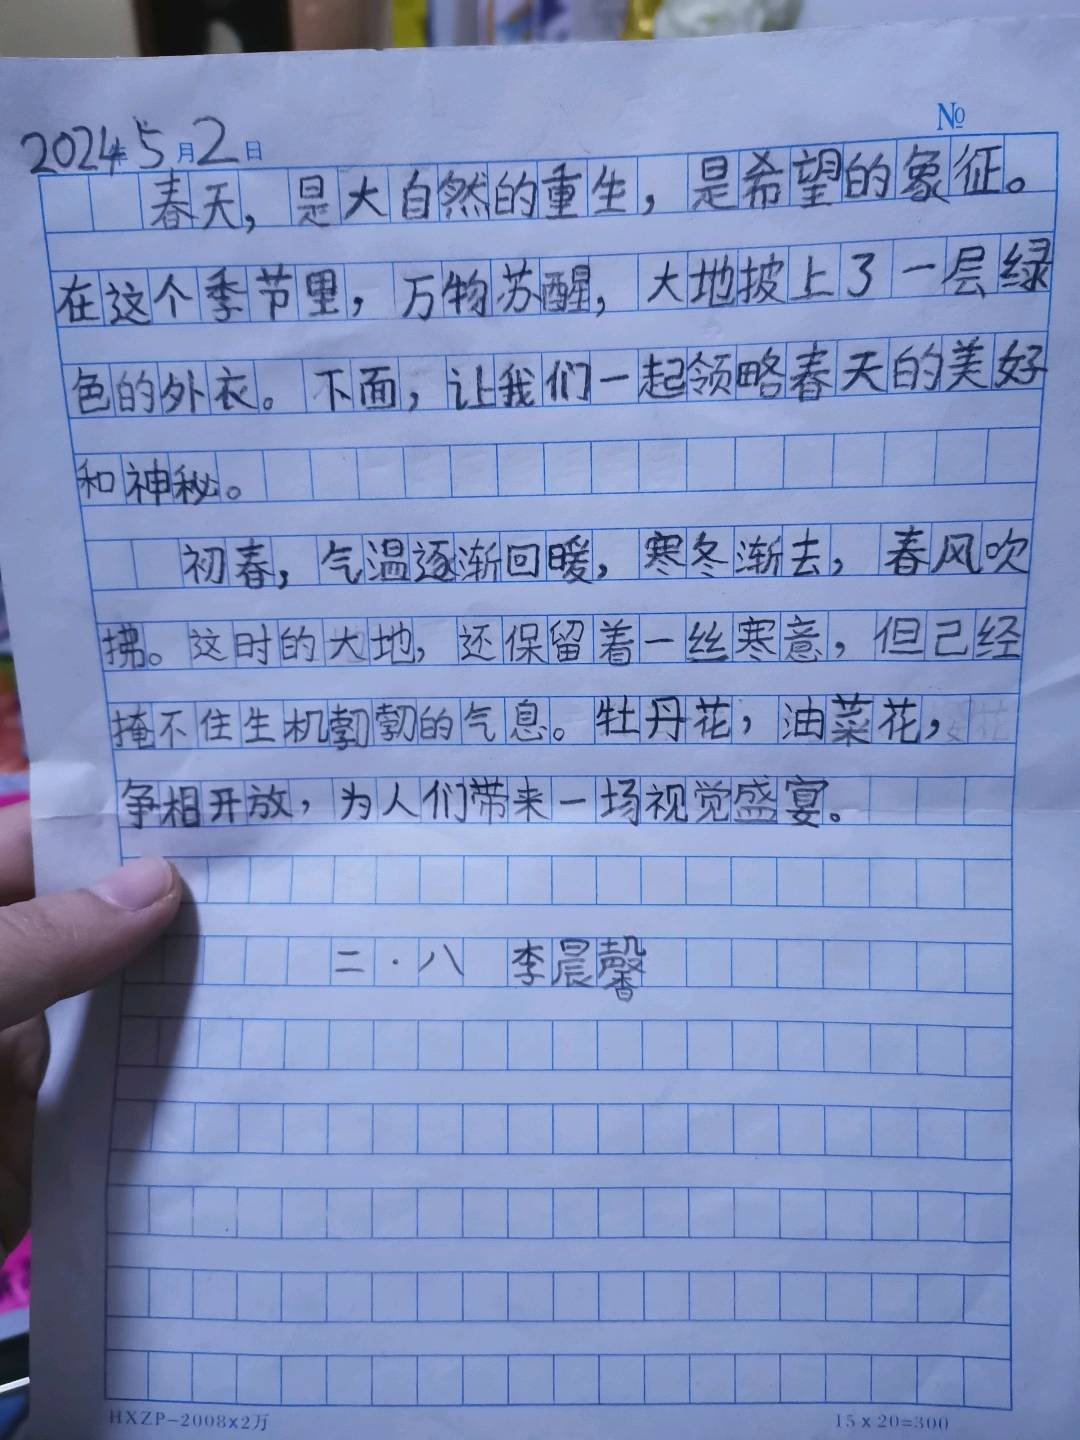 №
2024年5月2日
春天，是大自然的重生，是希望的象征。
在这个季节里，万物苏醒，大地披上了一层绿
色的外衣。下面，让我们一起领略春天的美好
和神秘。
初春，气温逐渐回暖，寒冬渐去，春风吹
拂。这时的大地，还保留着一丝寒意，但已经
掩不住生机勃勃的气息。牡丹花，油菜花，
争相开放，为人们带来一场视觉盛宴。
二·八 李晨馨
HXZP-2008x2万 15x20=300